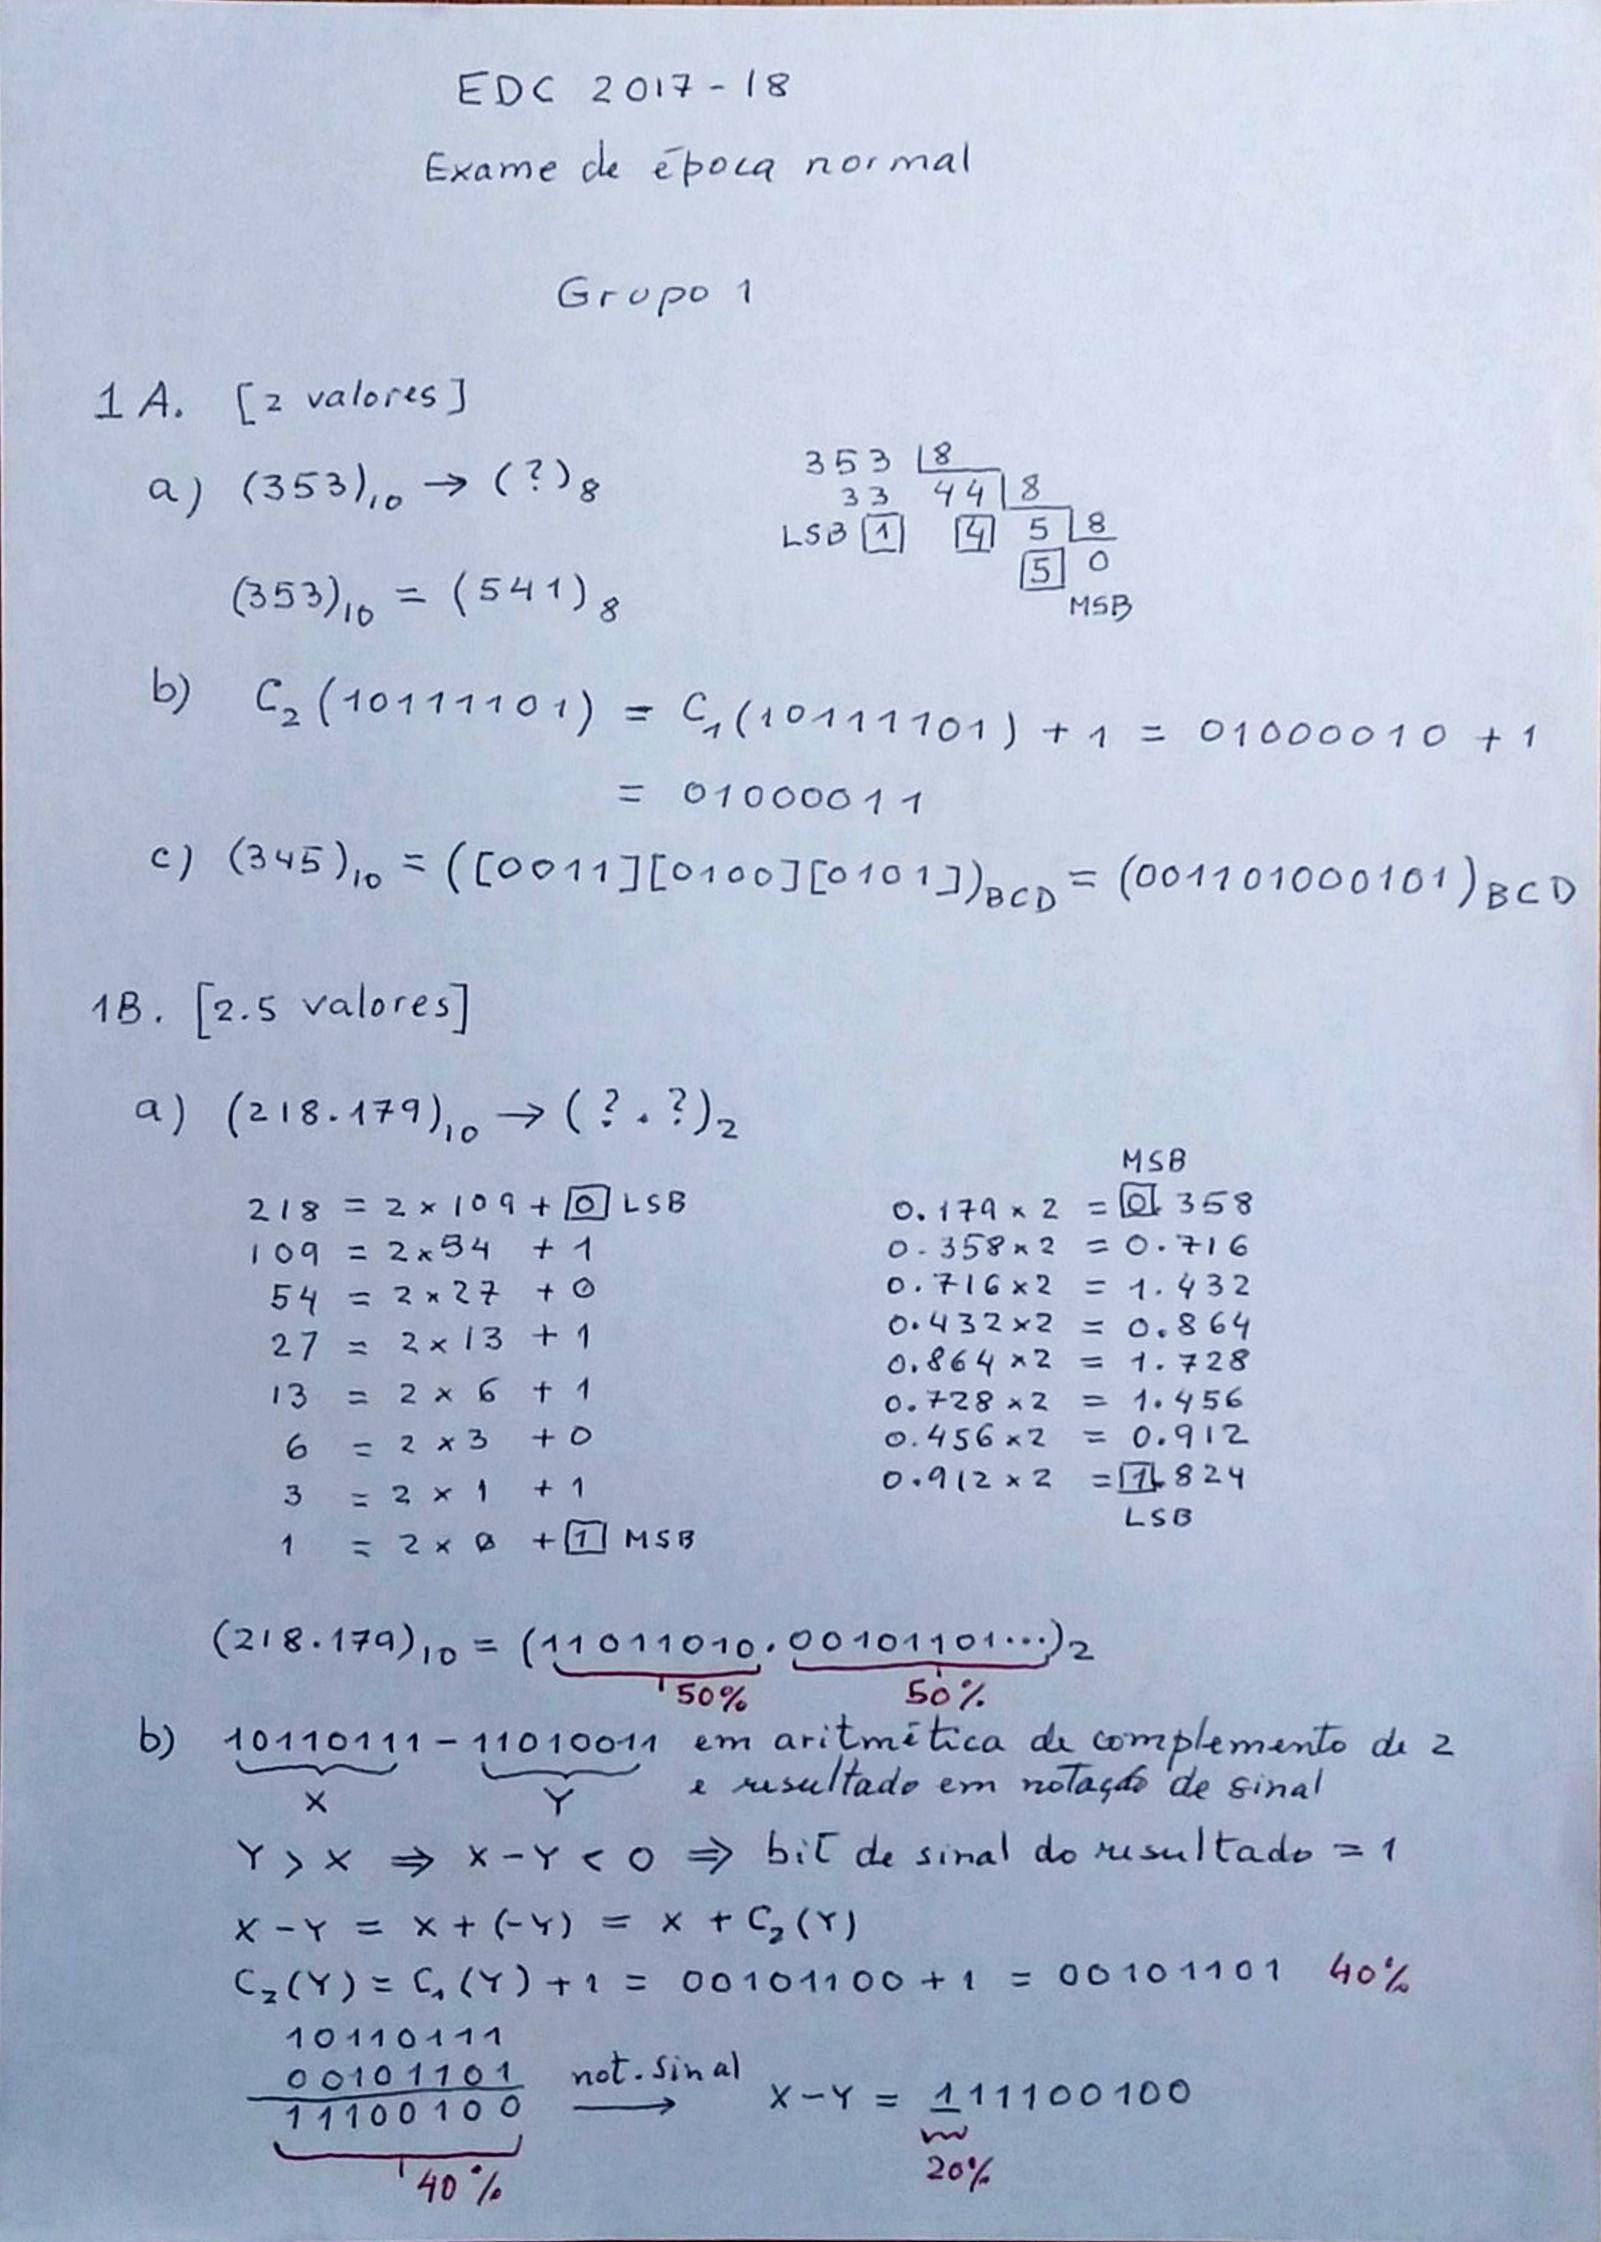 EDC 2017-18
Exame de época normal
Grupo 1
1A. [2 valores]
a) (353)₁₀ → (?)₈
353 |8
33 44 |8
LSB 1 4 5 |8
5 0
MSB
(353)₁₀ = (541)₈
b) C₂(10111101) = C₁(10111101) + 1 = 01000010 + 1
= 01000011
c) (345)₁₀ = ([0011][0100][0101])BCD = (001101000101)BCD
1B. [2.5 valores]
a) (218.179)₁₀ → (?.?)₂
218 = 2 × 109 + 0 LSB
109 = 2 × 54 + 1
54 = 2 × 27 + 0
27 = 2 × 13 + 1
13 = 2 × 6 + 1
6 = 2 × 3 + 0
3 = 2 × 1 + 1
1 = 2 × 0 + 1 MSB
MSB
0.179 × 2 = 0.358
0.358 × 2 = 0.716
0.716 × 2 = 1.432
0.432 × 2 = 0.864
0.864 × 2 = 1.728
0.728 × 2 = 1.456
0.456 × 2 = 0.912
0.912 × 2 = 1.824
LSB
(218.179)₁₀ = (11011010.00101101...)₂
50% 50%
b) 10110111 - 11010011 em aritmética de complemento de 2
X Y e resultado em notação de sinal
Y > X ⇒ X - Y < 0 ⇒ bit de sinal do resultado = 1
X - Y = X + (-Y) = X + C₂(Y)
C₂(Y) = C₁(Y) + 1 = 00101100 + 1 = 00101101 40%
10110111
00101101 not. sinal
11100100 → X - Y = 111100100
40% 20%